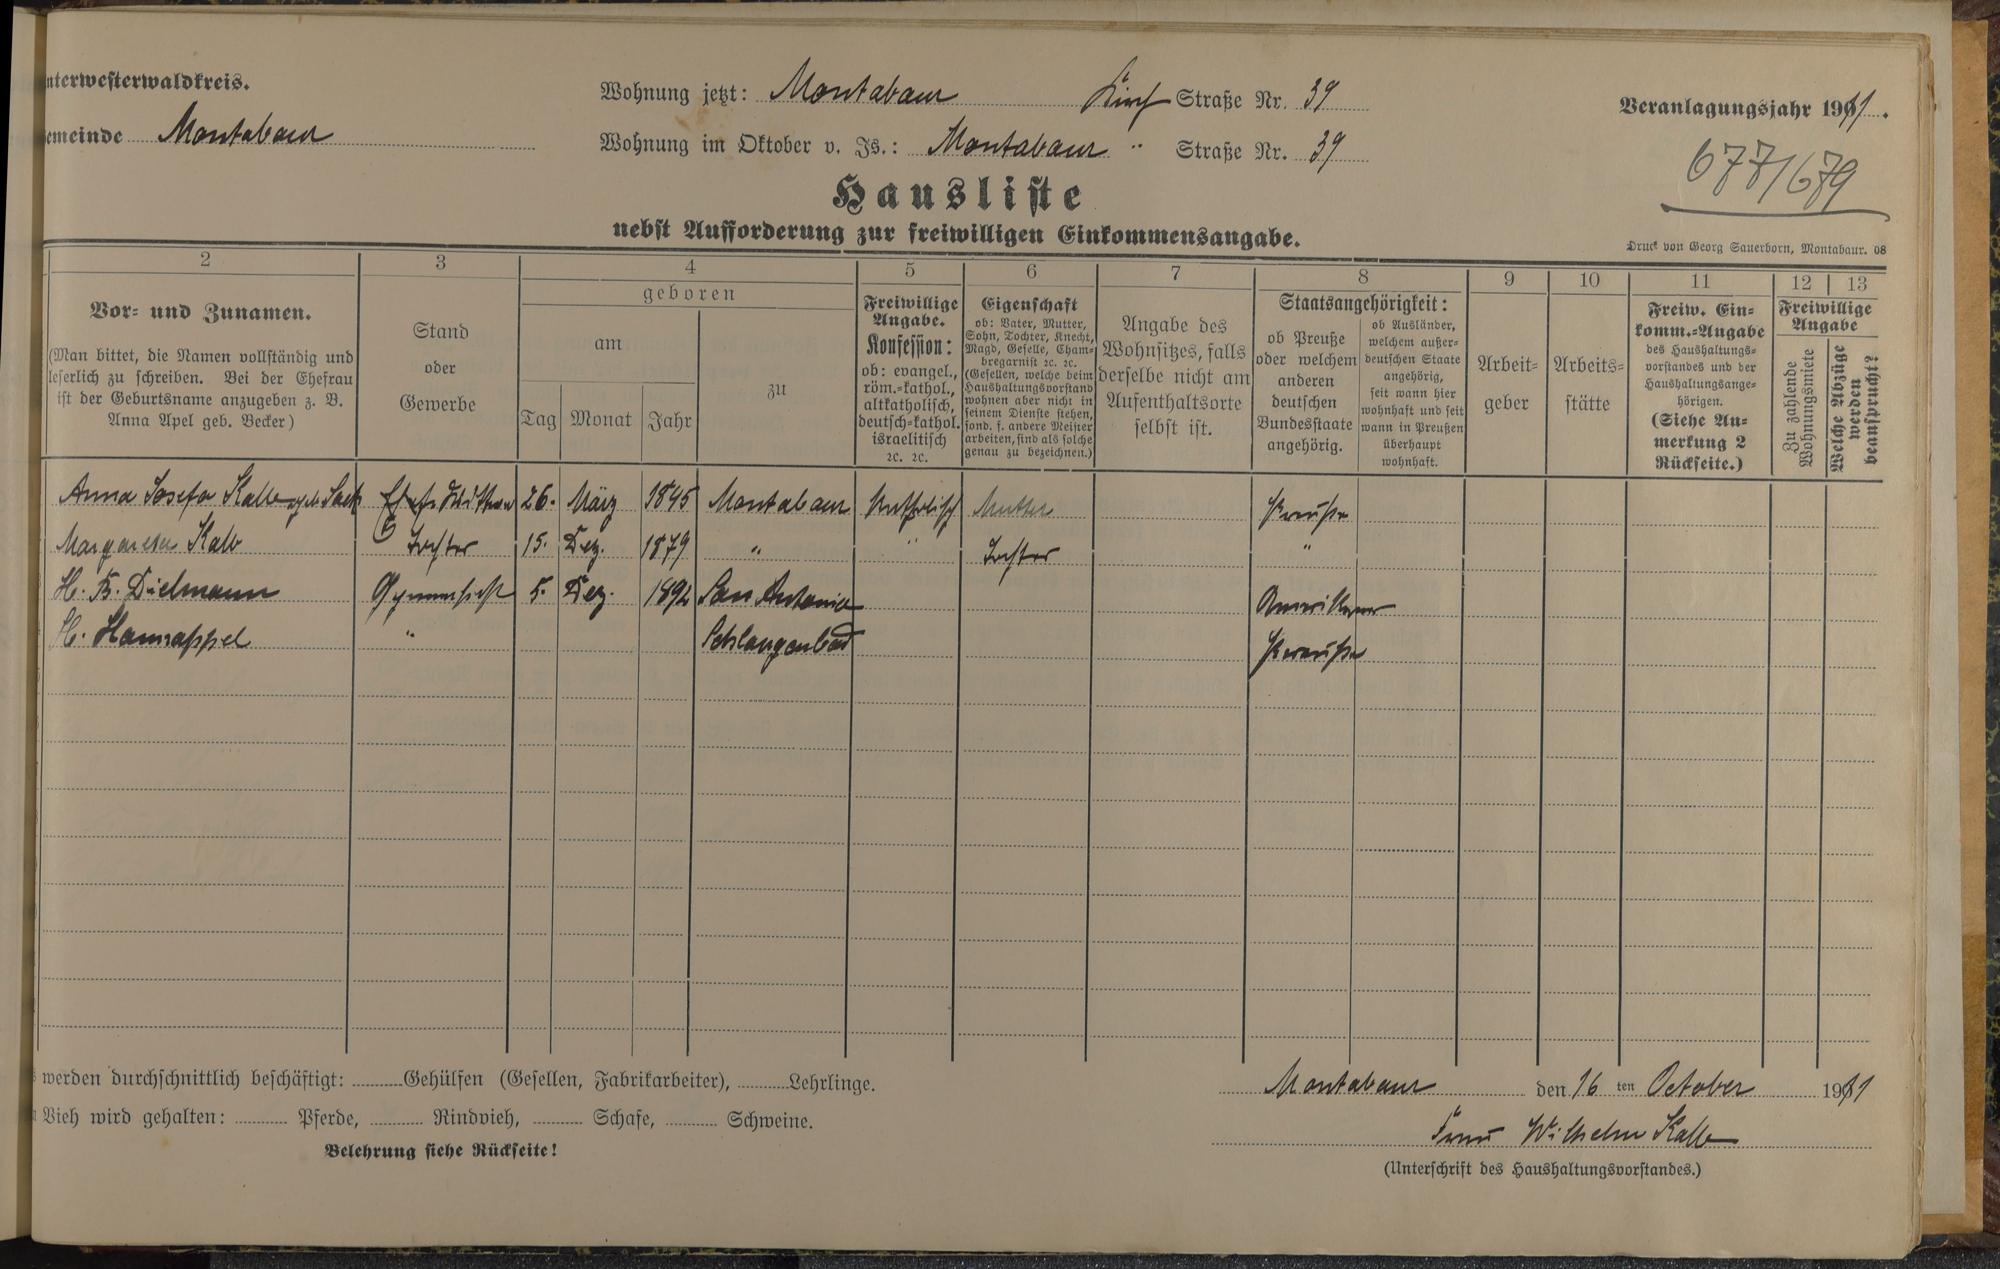 nterwesterwaldkreis.
emeinde Montabaur
Wohnung jetzt: Montabaur Kirch Straße Nr. 39
Wohnung im Oktober v. Js.: Montabaur " Straße Nr. 39
Veranlagungsjahr 1911.
677/679
Hausliste
nebst Aufforderung zur freiwilligen Einkommensangabe.
Druck von Georg Sauerborn, Montabaur. 08
2 3 4 5 6 7 8 9 10 11 12 13
Vor- und Zunamen.
(Man bittet, die Namen vollständig und
leserlich zu schreiben. Bei der Ehefrau
ist der Geburtsname anzugeben z. B.
Anna Apel geb. Becker)
Stand
oder
Gewerbe
geboren
am
Tag Monat Jahr
zu
Freiwillige
Angabe.
Konfession:
ob: evangel.,
röm.-kathol.,
altkatholisch,
deutsch-kathol.
israelitisch
ꝛc. ꝛc.
Eigenschaft
ob: Vater, Mutter,
Sohn, Tochter, Knecht,
Magd, Geselle, Cham-
bregarnist ꝛc. ꝛc.
(Gesellen, welche beim
Haushaltungsvorstand
wohnen aber nicht in
seinem Dienste stehen,
sond. f. andere Meister
arbeiten, sind als solche
genau zu bezeichnen.)
Angabe des
Wohnsitzes, falls
derselbe nicht am
Aufenthaltsorte
selbst ist.
Staatsangehörigkeit:
ob Preuße
oder welchem
anderen
deutschen
Bundesstaate
angehörig.
ob Ausländer,
welchem außer-
deutschen Staate
angehörig,
seit wann hier
wohnhaft und seit
wann in Preußen
überhaupt
wohnhaft.
Arbeit-
geber
Arbeits-
stätte
Freiw. Ein-
komm.-Angabe
des Haushaltungs-
vorstandes und der
Haushaltungsange-
hörigen.
(Siehe An-
merkung 2
Rückseite.)
Freiwillige
Angabe
Zu zahlende
Wohnungsmiete
Welche Abzüge
werden
beansprucht?
Anna Josefa Kalb geb. 26. März 1845 Montabaur Katholisch Mutter Preuße
Margaretha Kalb Tochter 15. Dez. 1879 " " Tochter "
H. B. Dielmann Gymnasiast 5. Dez. 1892 San Antonio Amerikaner
H. Hannappel " Schlangenbad Preuße
werden durchschnittlich beschäftigt: Gehülfen (Gesellen, Fabrikarbeiter), Lehrlinge.
Vieh wird gehalten: Pferde, Rindvieh, Schafe, Schweine.
Belehrung siehe Rückseite!
Montabaur den 16 ten October 1911
Frau Wilhelm Kalb
(Unterschrift des Haushaltungsvorstandes.)